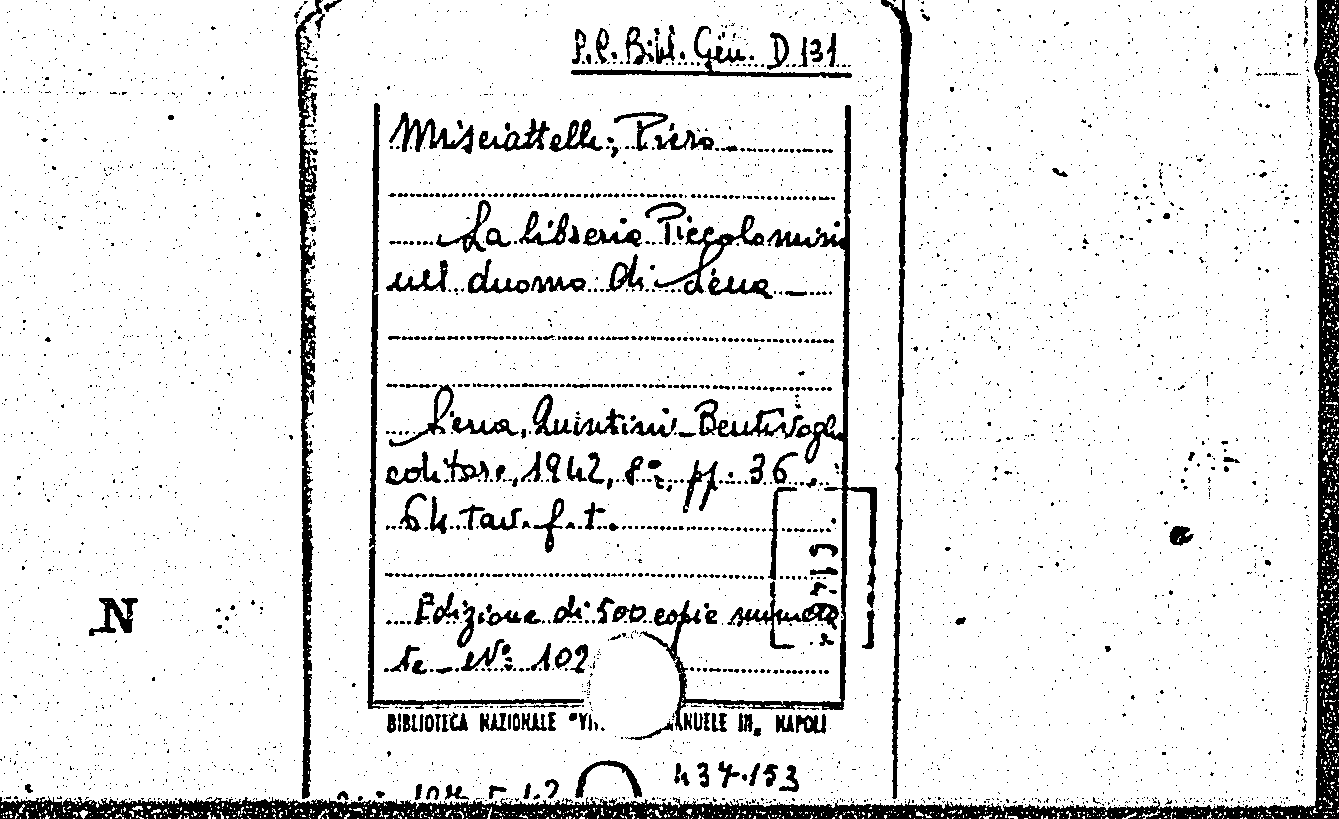 P.P. Bibl. Gen. D 131
Misciattelli, Piero.
La libreria Piccolomini
nel duomo di Siena —
Siena, Quintini-Bentivoglio
editore, 1942, 8º, pp. 36,
64 tav. f. t.
Edizione di 500 copie numera
te — Nº 102
BIBLIOTECA NAZIONALE "VI ANUELE III„ NAPOLI
437.153
N